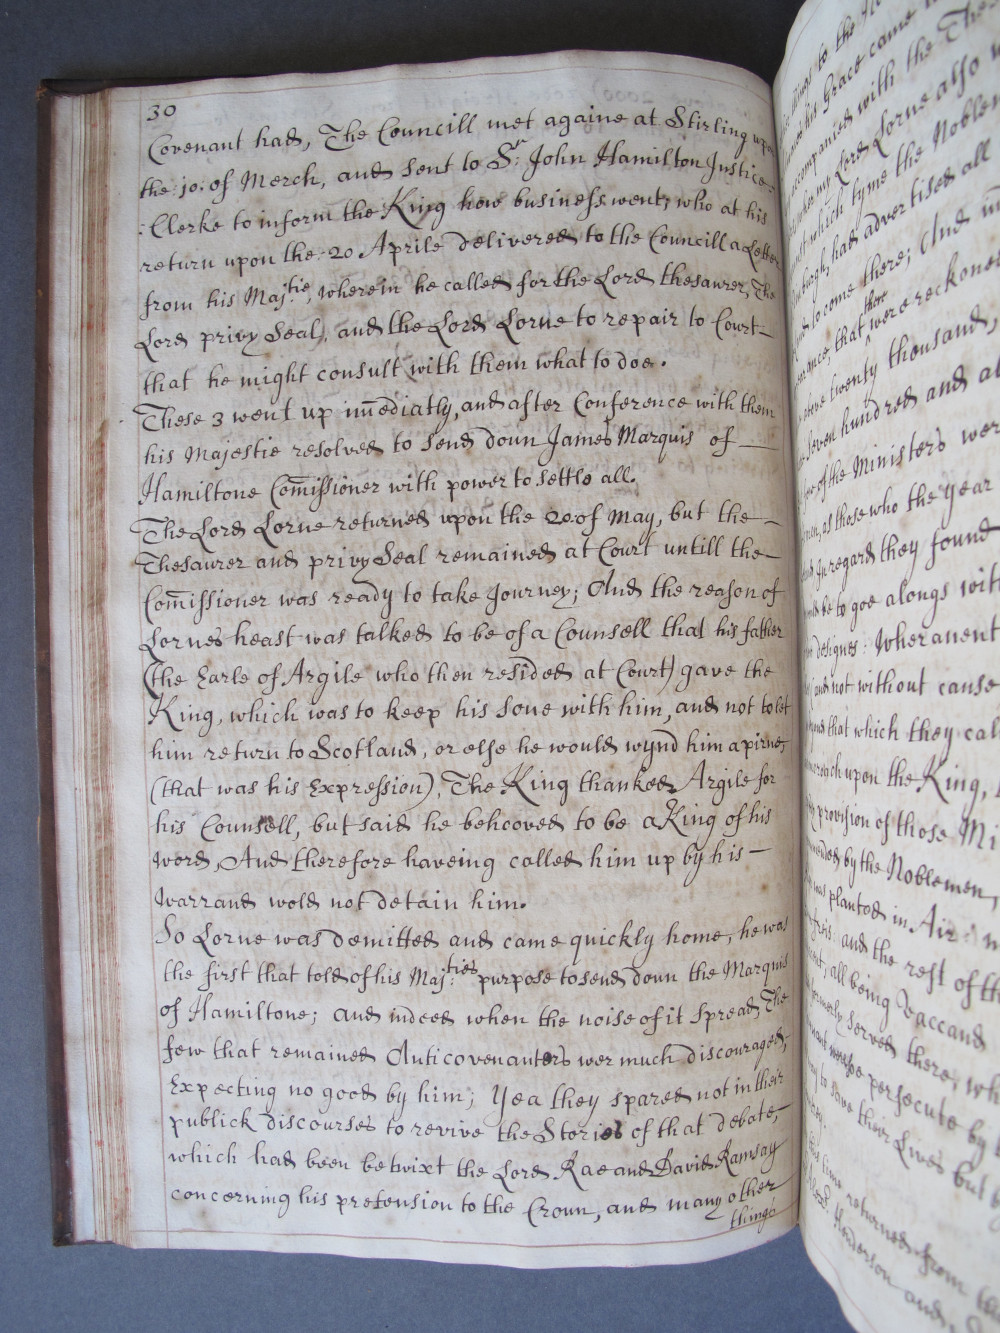 30
Covenant had, The Councill met againe at Stirling upon
the 10: of Merch, and sent to Sr: John Hamilton Justice-
:Clerke to inform the King how business went, who at his
return upon the 20 Aprile delivered to the Councill a Letter
from his Maj:tie, wherein he called for the Lord thesaurer, The
Lord privy Seal, and the Lord Lorne to repair to Court
that he might consult with them what to doe.
These 3 went up im̄ediatly, and after Conference with them
his Majestie resolved to send doun James Marquis of
Hamiltone Com̄issioner with power to settle all.
The Lord Lorne returned upon the 20: of May, but the
Thesaurer and privy Seal remained at Court untill the
Com̄issioner was ready to take Journey; And the reason of
Lornes heast was talked to be of a Counsell that his father
(the Earle of Argile who then resided at Court) gave the
King, which was to keep his sone with him, and not to let
him return to Scotland, or else he would wynd him a pirne,
(that was his Expression), The King thanked Argile for
his Counsell, but said he behooved to be a King of his
word, And therefore haveing called him up by his
warrand wold not detain him.
So Lorne was demitted and came quickly home, he was
the first that told of his Maj:ties purpose to send doun the Marquis
of Hamiltone; and indeed when the noise of it spread, The
few that remained Anticovenanters wer much discouraged,
Expecting no good by him; Yea they spared not in their
publick discourses to revive the Stories of that debate,
which had been betwixt the Lord Rae and David Ramsay
concerning his pretension to the Croun, and many other
things
things to the
his Grace came
accompanied with the
my Lord Lorne also
which tyme the Noblemen
had advertised all
to come there; And
that there were reckoned
above twenty thousand,
seven hundred and
of the Ministers wer
as those who the year
In regard they found
be to goe alongs with
designes: Wheranent
and not without cause
that which they
upon the King,
provision of those Mi
by the Noblemen,
was planted in Air
and the rest of the
all being Vaccand
formerly served there,
persecute by
to save their Lives but
time returned from
Henderson and